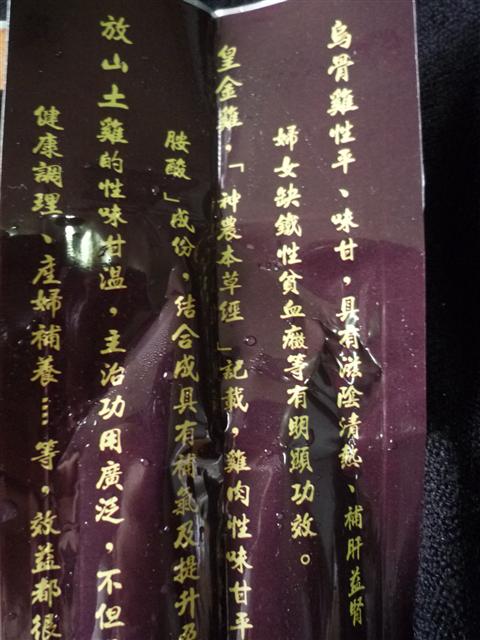 烏骨雞性平、味甘，具有滋陰清熱、補肝益腎
婦女缺鐵性貧血癥等有明顯功效。
皇金雞，「神農本草經」記載，雞肉性味甘平
胺酸」成份，結合成具有補氣及提升
放山土雞的性味甘溫，主治功用廣泛，不但
健康調理、產婦補養…等，效益都很